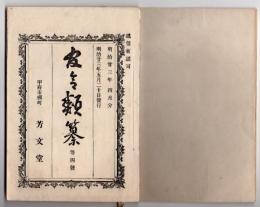 遞信省認可
明治廿三年四月分
明治廿三年五月二十日發行
官令類纂
第四號
甲府市柳町
芳文堂